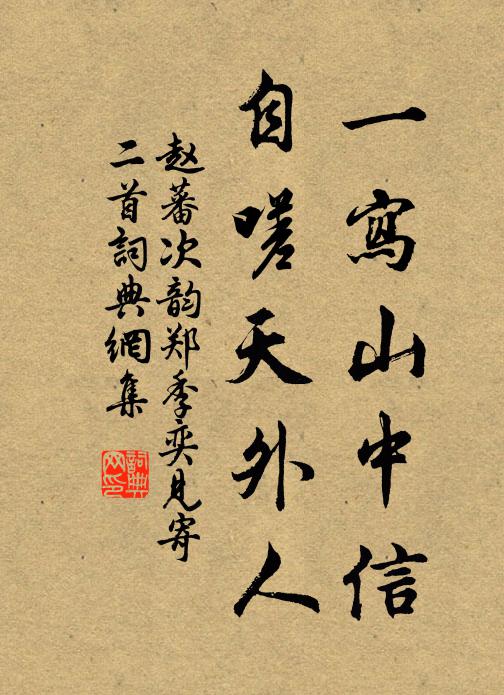 一寫山中信
自嗟天外人
赵蕃次韵郑季奕見寄
二首詞典網集
詞典网印